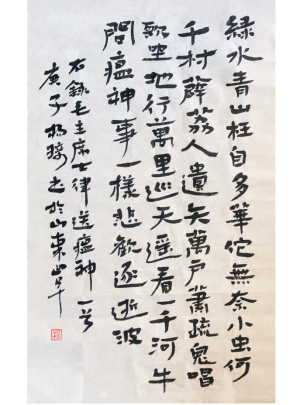 綠水青山枉自多華佗無奈小虫何
千村薜荔人遺矢萬戶蕭疏鬼唱
歌坐地行萬里巡天遥看一千河牛
問瘟神事一樣悲歡逐逝波
右錄毛主席七律送瘟神一首
庚子楊於山東